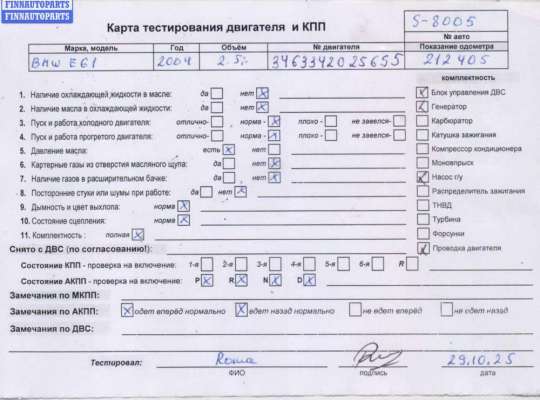 FINNAUTOPARTS
FINNAUTOPARTS
Карта тестирования двигателя и КПП
S-8005
№ авто
Марка, модель Год Объём № двигателя Показание одометра
BMW E61 2004 2.5i 3463342025655 212405
комплектность
1. Наличие охлаждающей жидкости в масле: да нет Блок управления ДВС
2. Наличие масла в охлаждающей жидкости: да нет Генератор
3. Пуск и работа холодного двигателя: отлично- норма - плохо - не завелся- Карбюратор
4. Пуск и работа прогретого двигателя: отлично- норма - плохо - не завелся- Катушка зажигания
5. Давление масла: есть нет Компрессор кондиционера
6. Картерные газы из отверстия масляного щупа: да нет Моновпрыск
7. Наличие газов в расширительном бачке: да нет Насос г/у
8. Посторонние стуки или шумы при работе: да нет Распределитель зажигания
9. Дымность и цвет выхлопа: норма ТНВД
10. Состояние сцепления: норма Турбина
11. Комплектность : полная Форсунки
Снято с ДВС (по согласованию!): Проводка двигателя
Состояние КПП - проверка на включение: 1-я 2-я 3-я 4-я 5-я 6-я R
Состояние АКПП - проверка на включение: P R N D
Замечания по МКПП:
Замечания по АКПП: едет вперёд нормально едет назад нормально не едет вперёд не едет назад
Замечания по ДВС:
Тестировал: Roma 29.10.25
ФИО подпись дата